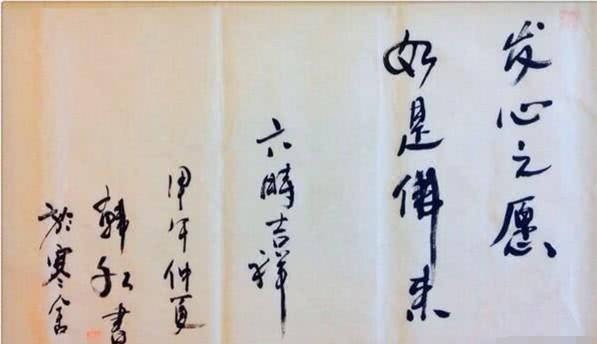 发心之愿
如是僻来
六時吉祥
甲午仲夏
韩红書
於寒舍